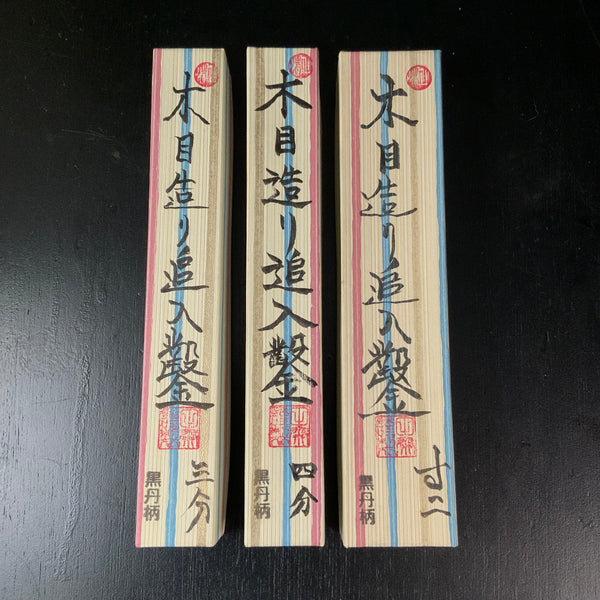 木目造り追入鑿
三分
黒丹柄
木目造り追入鑿
四分
黒丹柄
木目造り追入鑿
寸二
黒丹柄